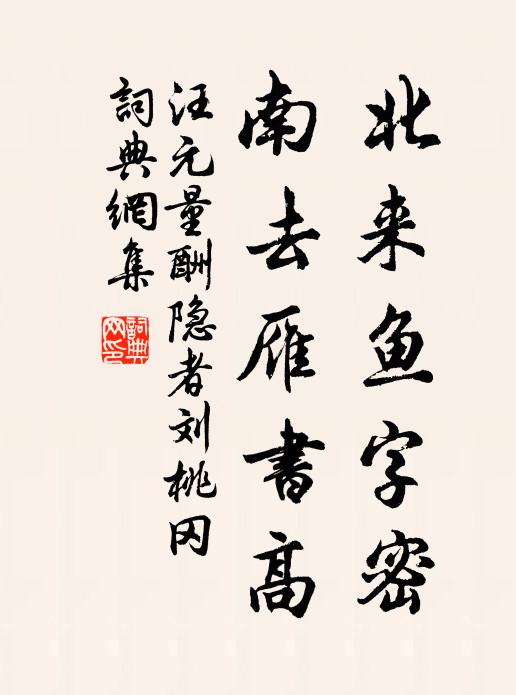 北来鱼字密
南去雁書高
汪元量酬隐者刘桃冈
詞典網集
詞典网印